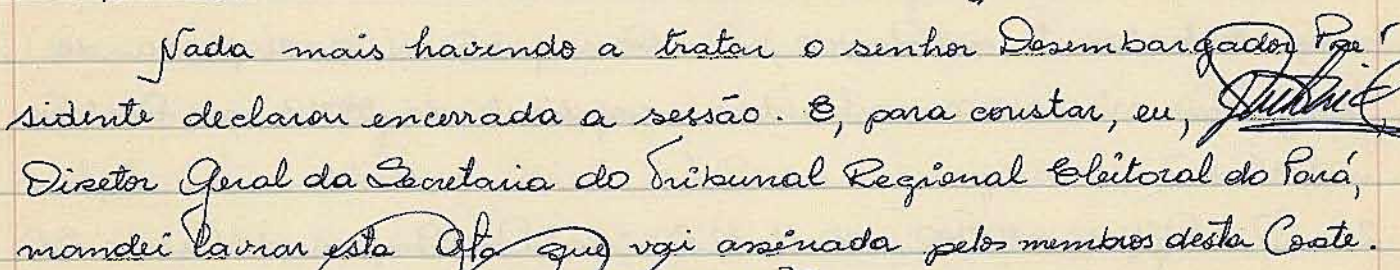 Nada mais havendo a tratar o senhor Desembargador Pre-
sidente declarou encerrada a sessão. E, para constar, eu,
Diretor Geral da Secretaria do Tribunal Regional Eleitoral do Pará,
mandei lavrar esta Ata que vai assinada pelos membros desta Corte.